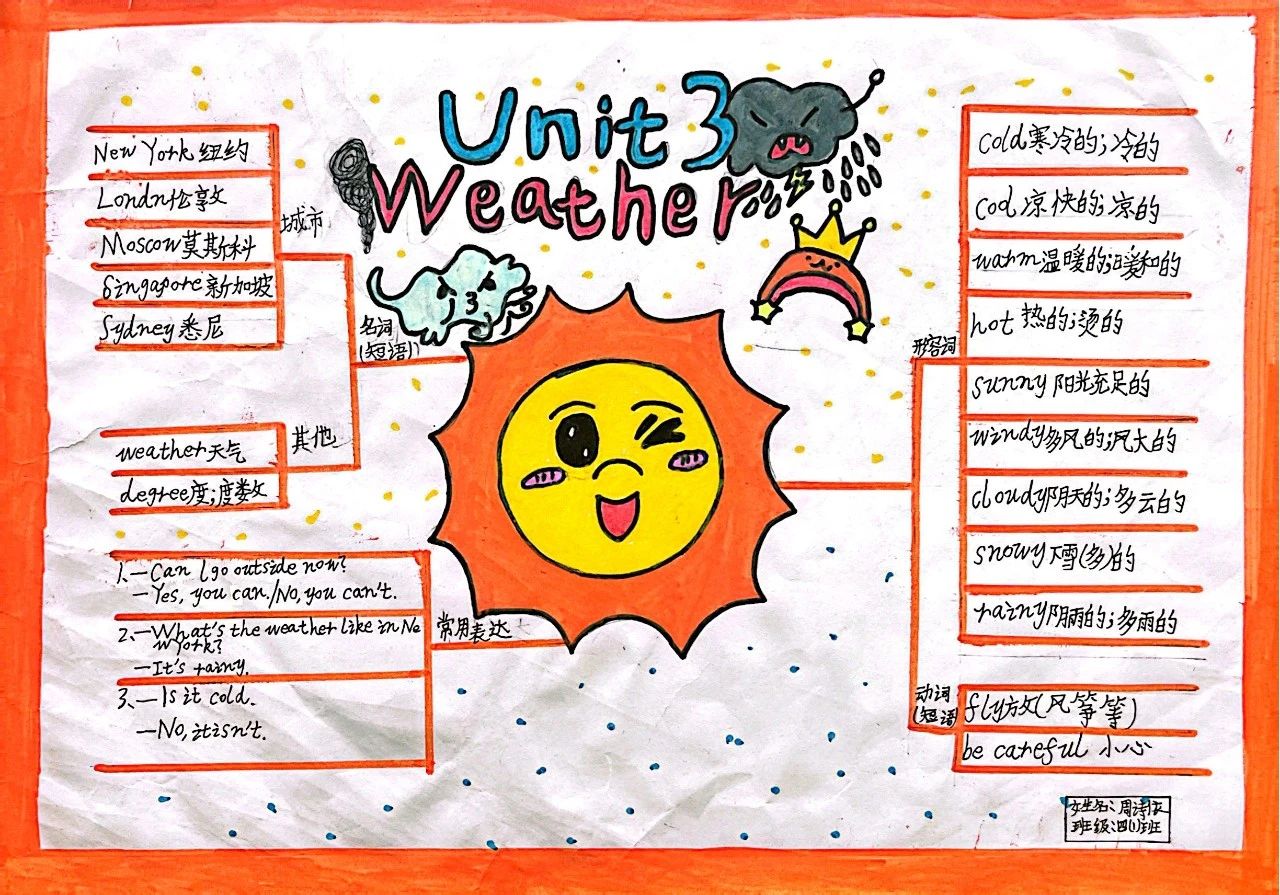 Unit 3
Weather
New York 纽约
Londn 伦敦
Moscow 莫斯科
Singapore 新加坡
Sydney 悉尼
城市
名词
(短语)
weather 天气
degree 度;度数
其他
1、—Can I go outside now?
—Yes, you can./No, you can't.
2、—What's the weather like in Ne
w York?
—It's rainy.
3、—Is it cold.
—No, it isn't.
常用表达
cold 寒冷的;冷的
cool 凉快的;凉的
warm 温暖的;暖和的
hot 热的;烫的
sunny 阳光充足的
windy 多风的;风大的
cloudy 阴天的;多云的
snowy 下雪(多)的
rainy 阴雨的;多雨的
形容词
动词
(短语)
fly 放(风筝等)
be careful 小心
姓名:周诗
班级:四(1)班